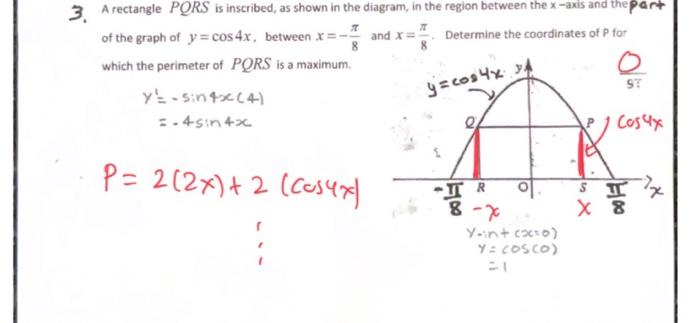 3. A rectangle PQRS is inscribed, as shown in the diagram, in the region between the x-axis and the part
of the graph of y = cos 4x, between x = -π/8 and x = π/8. Determine the coordinates of P for
which the perimeter of PQRS is a maximum.
y' = -sin4x(4)
= -4sin4x
P = 2(2x) + 2(cos4x)
y=cos4x
y
0
Q
P
cos4x
-π/8
R
O
S
π/8
x
-x
x
y-int (x=0)
y = cos(0)
= 1